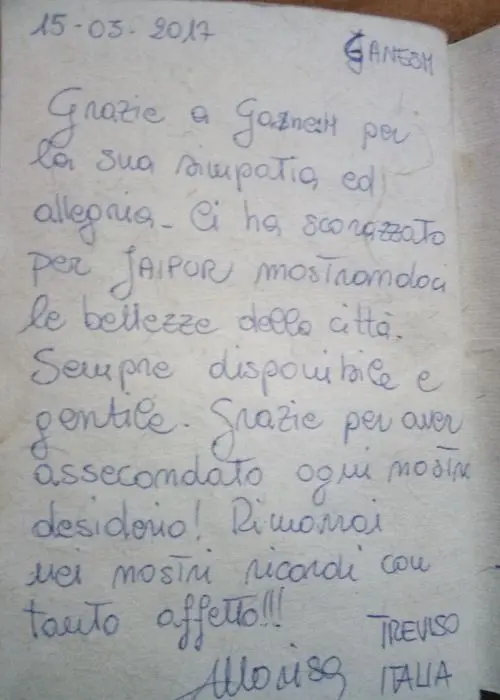 15-03-2017
GANESH
Grazie a Gaznesh per
la sua simpatia ed
allegria. Ci ha scorazzato
per JAIPUR mostrandoci
le bellezze della città.
Sempre disponibile e
gentile. Grazie per aver
assecondato ogni nostri
desiderio! Rimarrai
nei nostri ricordi con
tanto affetto!!!
TREVISO
Marisa ITALIA